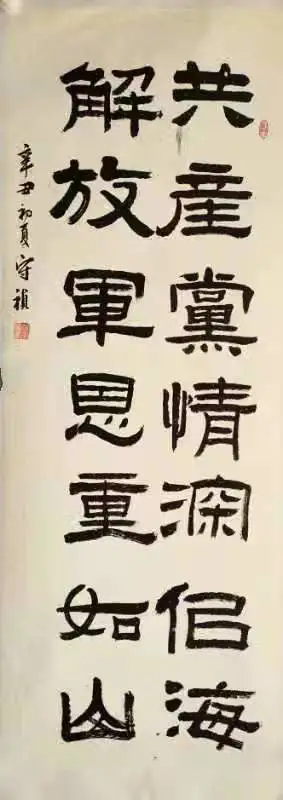 共產黨情深侣海
解放軍恩重如山
辛丑初夏守禎